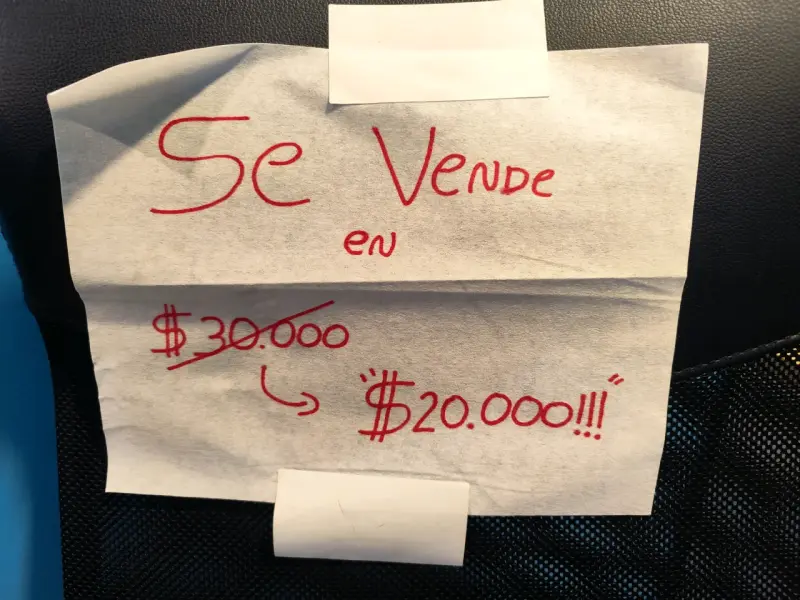 Se Vende
en
$30.000
"$20.000!!!"